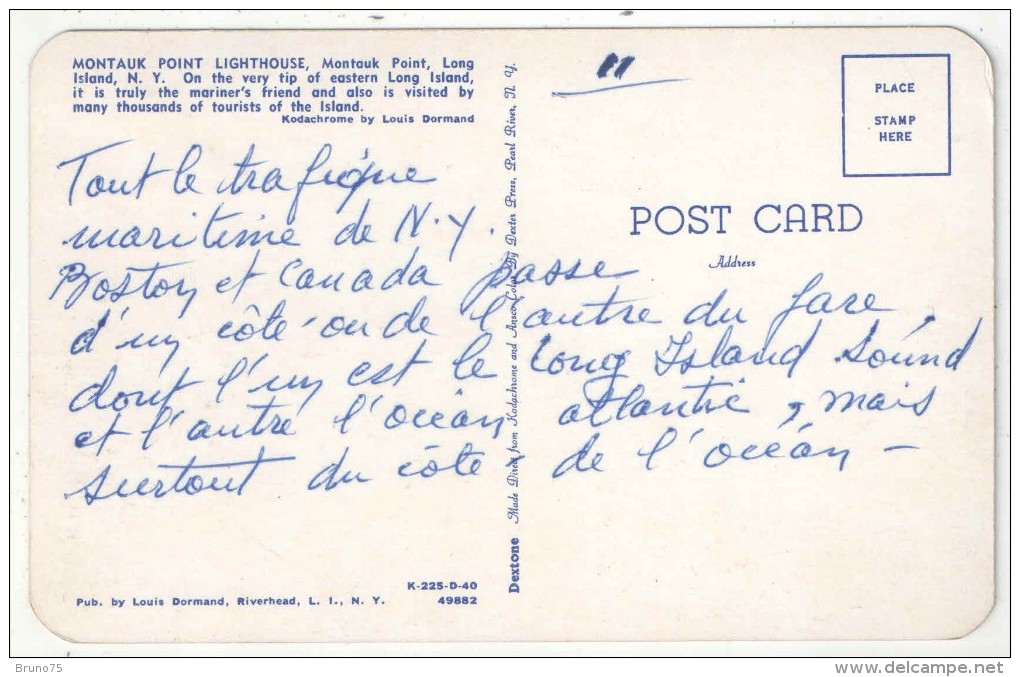 MONTAUK POINT LIGHTHOUSE, Montauk Point, Long
Island, N. Y. On the very tip of eastern Long Island,
it is truly the mariner's friend and also is visited by
many thousands of tourists of the Island.
Kodachrome by Louis Dormand
Tout le trafique
maritime de N.Y.
Boston et Canada passe
d'un côté ou de l'autre du fare,
dont l'un est le Long Island Sound
et l'autre l'océan atlantic, mais
surtout du côté de l'océan —
K-225-D-40
Pub. by Louis Dormand, Riverhead, L. I., N. Y. 49882
Dextone Made Direct from Kodachrome and Ansco Color By Dexter Press, Pearl River, N. Y.
11
PLACE
STAMP
HERE
POST CARD
Address
Bruno75
www.delcampe.net